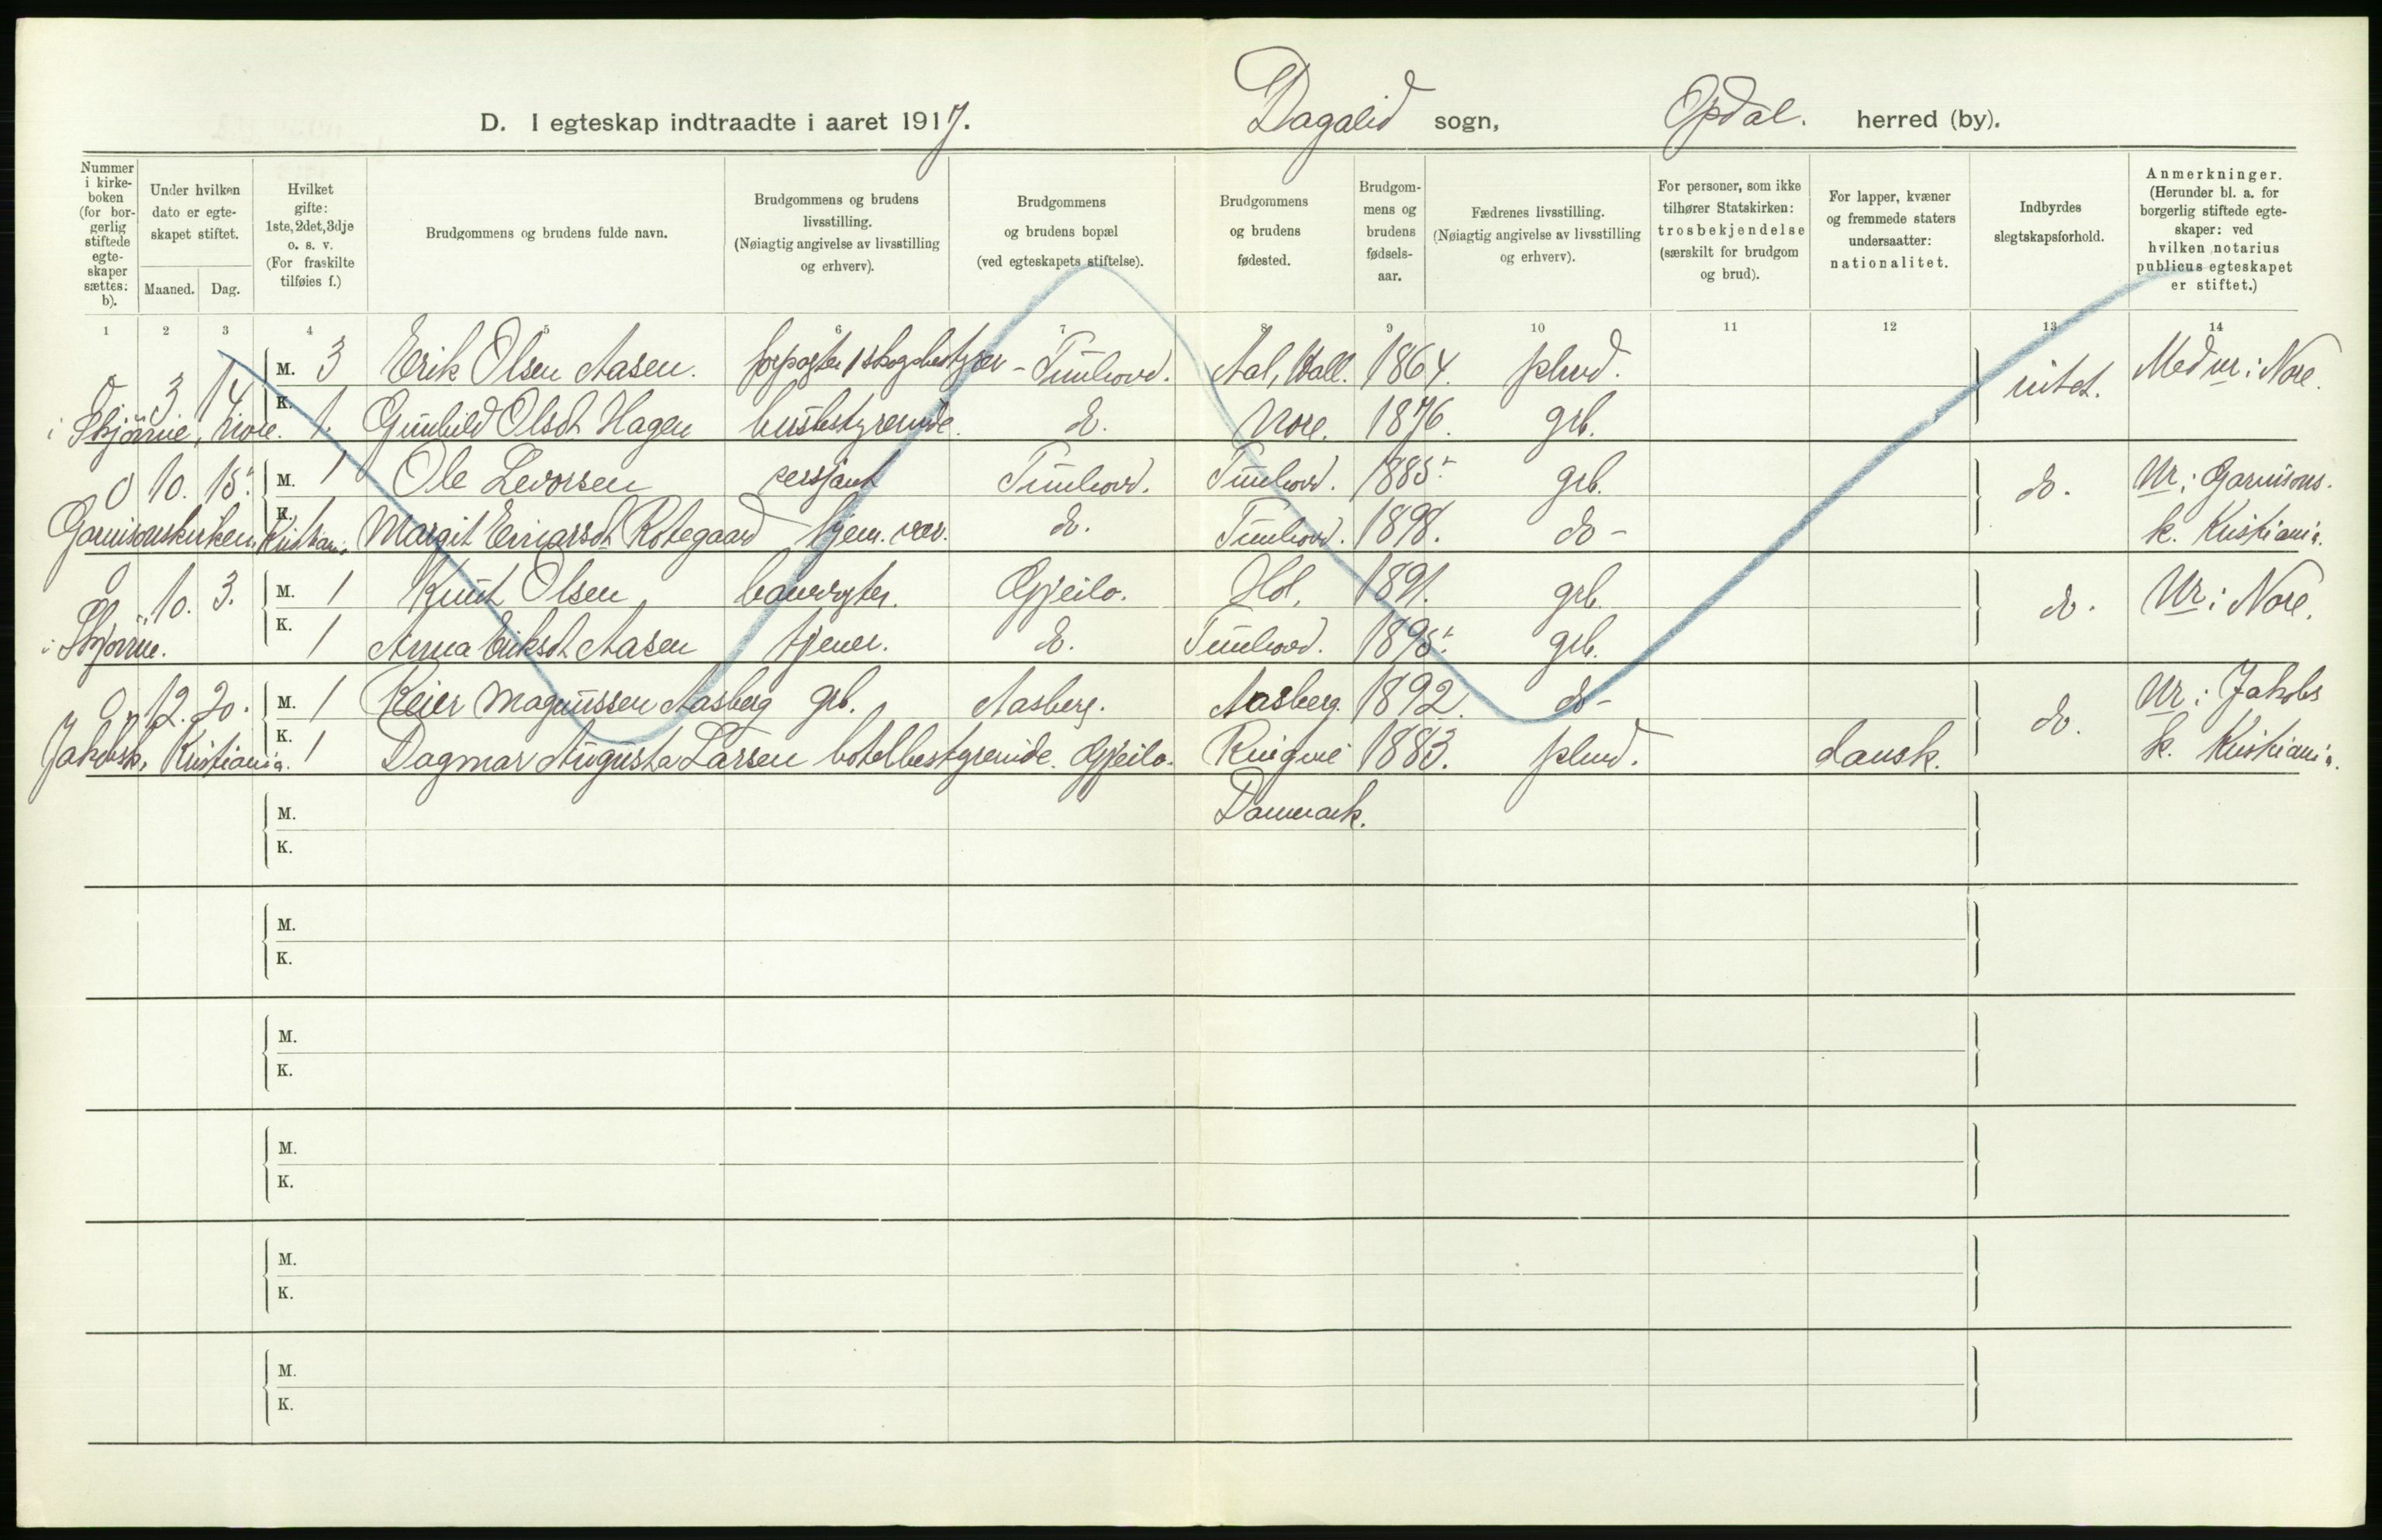 D. I egteskap indtraadte i aaret 1917. Dagalid sogn, Opdal. herred (by).
Nummer i kirkeboken (for borgerlig stiftede egteskaper sættes: b).
Under hvilken dato er egteskapet stiftet.
Maaned. Dag.
Hvilket gifte: 1ste, 2det, 3dje o. s. v. (For fraskilte tilføies f.)
Brudgommens og brudens fulde navn.
Brudgommens og brudens livsstilling. (Nøiagtig angivelse av livsstilling og erhverv).
Brudgommens og brudens bopæl (ved egteskapets stiftelse).
Brudgommens og brudens fødested.
Brudgommens og brudens fødselsaar.
Fædrenes livsstilling. (Nøiagtig angivelse av livsstilling og erhverv).
For personer, som ikke tilhører Statskirken: trosbekjendelse (særskilt for brudgom og brud).
For lapper, kvæner og fremmede staters undersaatter: nationalitet.
Indbyrdes slegtskapsforhold.
Anmerkninger. (Herunder bl. a. for borgerlig stiftede egteskaper: ved hvilken notarius publicus egteskapet er stiftet.)
1 2 3 4 5 6 7 8 9 10 11 12 13 14
0 3 14 M. 3 Erik Olsen Aasen. Tunhovd. Aal, Hall. 1864. plmd. intet. Med nr i Nore.
i Skjönne, Nore. K. 1. Gunhild Olsdt Hagen husbestyrerinde. do. Nore. 1876. grb.
0 10. 15. M. 1 Ole Levorsen sersjant Tunhovd. Tunhovd. 1885. grb. do. Nr. i Garnisons.
Garnisonskirken, Kristiania K. 1 Margit Rotegaard hjem. vær. do. Tunhovd. 1898. do - k. Kristiania.
0 10. 3. M. 1 Knut Olsen banevogter. Gjeilo. Hol. 1891. grb. do. Nr i Nore.
i Skjönne. K. 1 Anna Eriksdt Aasen tjener. do. Tunhovd. 1895. grb.
0 12. 20. M. 1 Reier Magnussen Aasberg grb. Aasberg. Aasberg. 1892. do - do. Nr. i Jakobs
Jakobsk, Kristiania. K. 1 Dagmar Augusta Larsen hotelbestyrerinde. Gjeilo. 1883. plmd. dansk. k. Kristiania.
M. Danmark.
K.
M.
K.
M.
K.
M.
K.
M.
K.
M.
K.